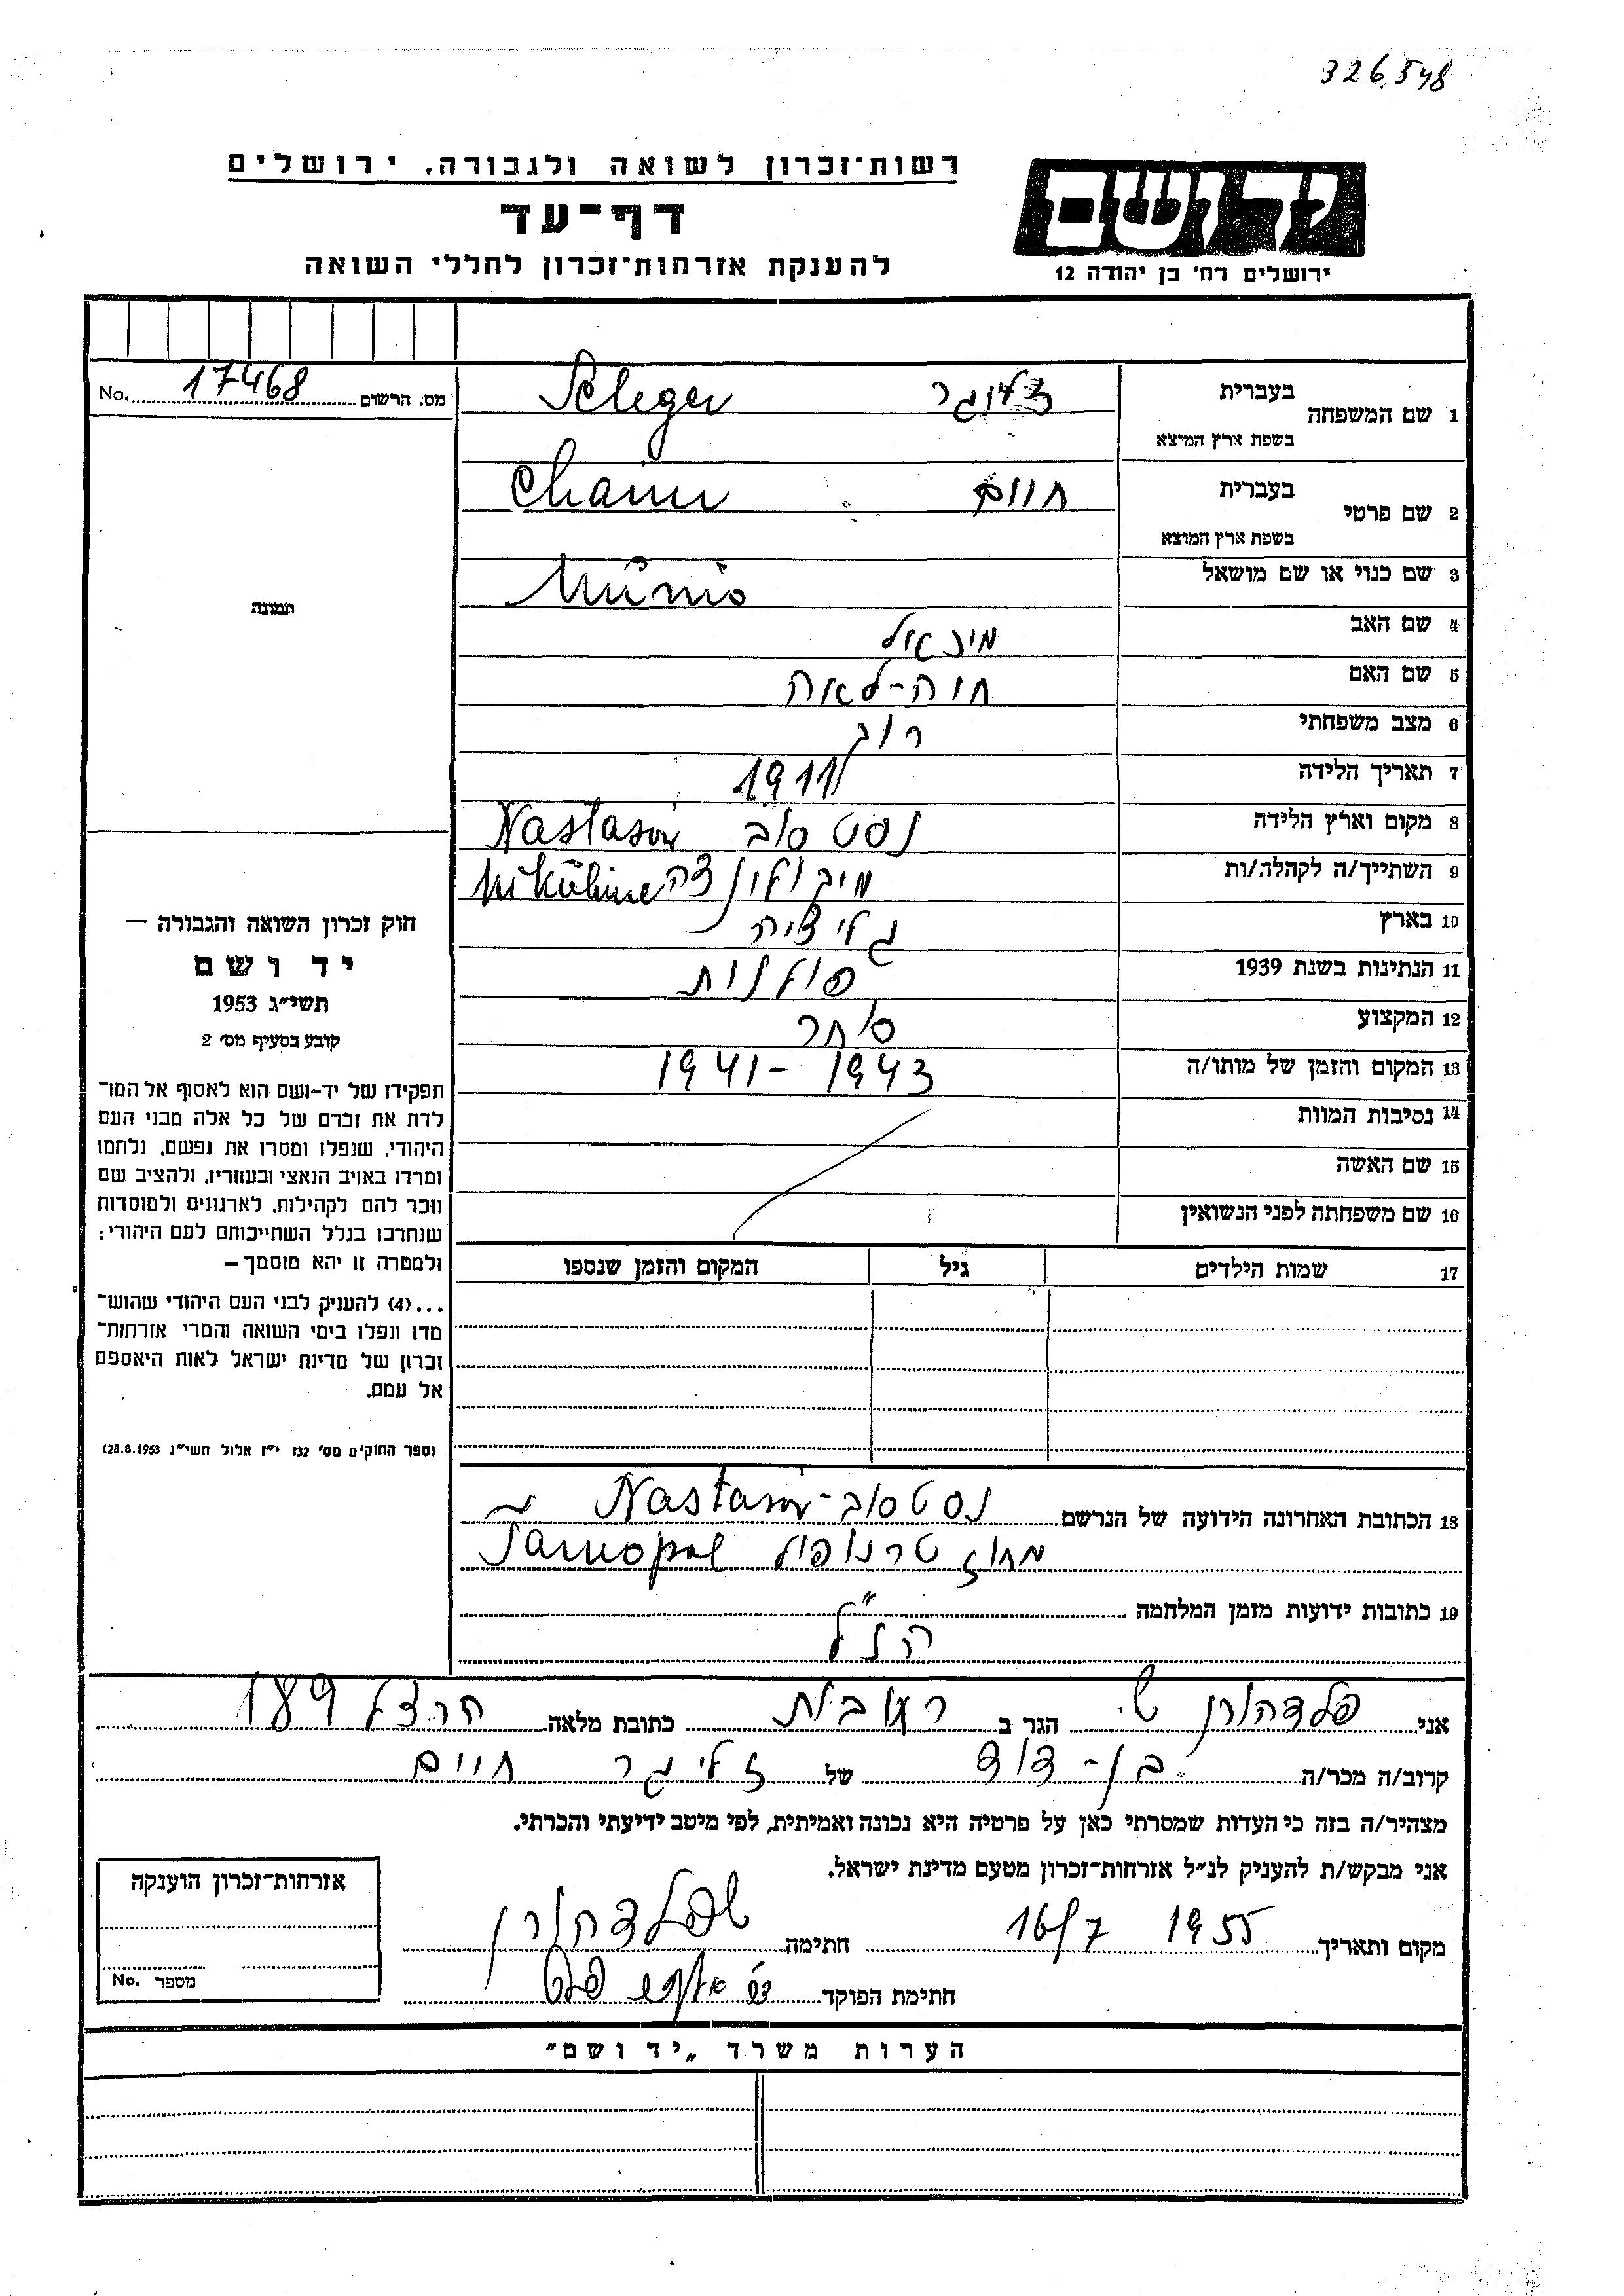 326548
רשות־זכרון לשואה ולגבורה, ירושלים
דף־עד
להענקת אזרחות־זכרון לחללי השואה
יד ושם
ירושלים רח' בן יהודה 12
מס. הרשום 17468 No.
1 שם המשפחה בעברית זליגר Seleger
בשפת ארץ המוצא
2 שם פרטי בעברית חיים Chaim
בשפת ארץ המוצא
3 שם כנוי או שם מושאל Munio
4 שם האב
5 שם האם חיה-לאה
6 מצב משפחתי רווק
7 תאריך הלידה 1911
8 מקום וארץ הלידה נסטסוב Nastasów
9 השתייך/ה לקהלה/ות
10 בארץ גליציה
11 הנתינות בשנת 1939 פולנית
12 המקצוע סוחר
13 המקום והזמן של מותו/ה 1941 - 1943
14 נסיבות המוות
15 שם האשה
16 שם משפחתה לפני הנשואין
17 שמות הילדים גיל המקום והזמן שנספו
18 הכתובת האחרונה הידועה של הנרשם נסטסוב - Nastasów
מחוז טרנופול Tarnopol
19 כתובות ידועות מזמן המלחמה
הנ"ל
תמונה
חוק זכרון השואה והגבורה —
יד ושם
תשי"ג 1953
קובע בסעיף מס' 2
תפקידו של יד-ושם הוא לאסוף אל המו־
לדת את זכרם של כל אלה מבני העם
היהודי, שנפלו ומסרו את נפשם, נלחמו
ומרדו באויב הנאצי ובעוזריו, ולהציב שם
וזכר להם לקהילות, לארגונים ולמוסדות
שנחרבו בגלל השתייכותם לעם היהודי;
ולמטרה זו יהא מוסמך —
...(4) להעניק לבני העם היהודי שהוש־
מדו ונפלו בימי השואה והמרי אזרחות־
זכרון של מדינת ישראל לאות היאספם
אל עמם.
(ספר החוקים מס' 132 י"ז אלול תשי"ג 28.8.1953)
אני פלדהורן ש. הגר ב רחובות כתובת מלאה הרצל 189
קרוב/ה מכר/ה בן-דוד של זליגר חיים
מצהיר/ה בזה כי העדות שמסרתי כאן על פרטיה היא נכונה ואמיתית, לפי מיטב ידיעתי והכרתי.
אני מבקש/ת להעניק לנ"ל אזרחות־זכרון מטעם מדינת ישראל.
מקום ותאריך 16/7 1955 חתימה ש פלדהורן
חתימת הפוקד
אזרחות־זכרון הוענקה
מספר No.
הערות משרד „יד ושם"